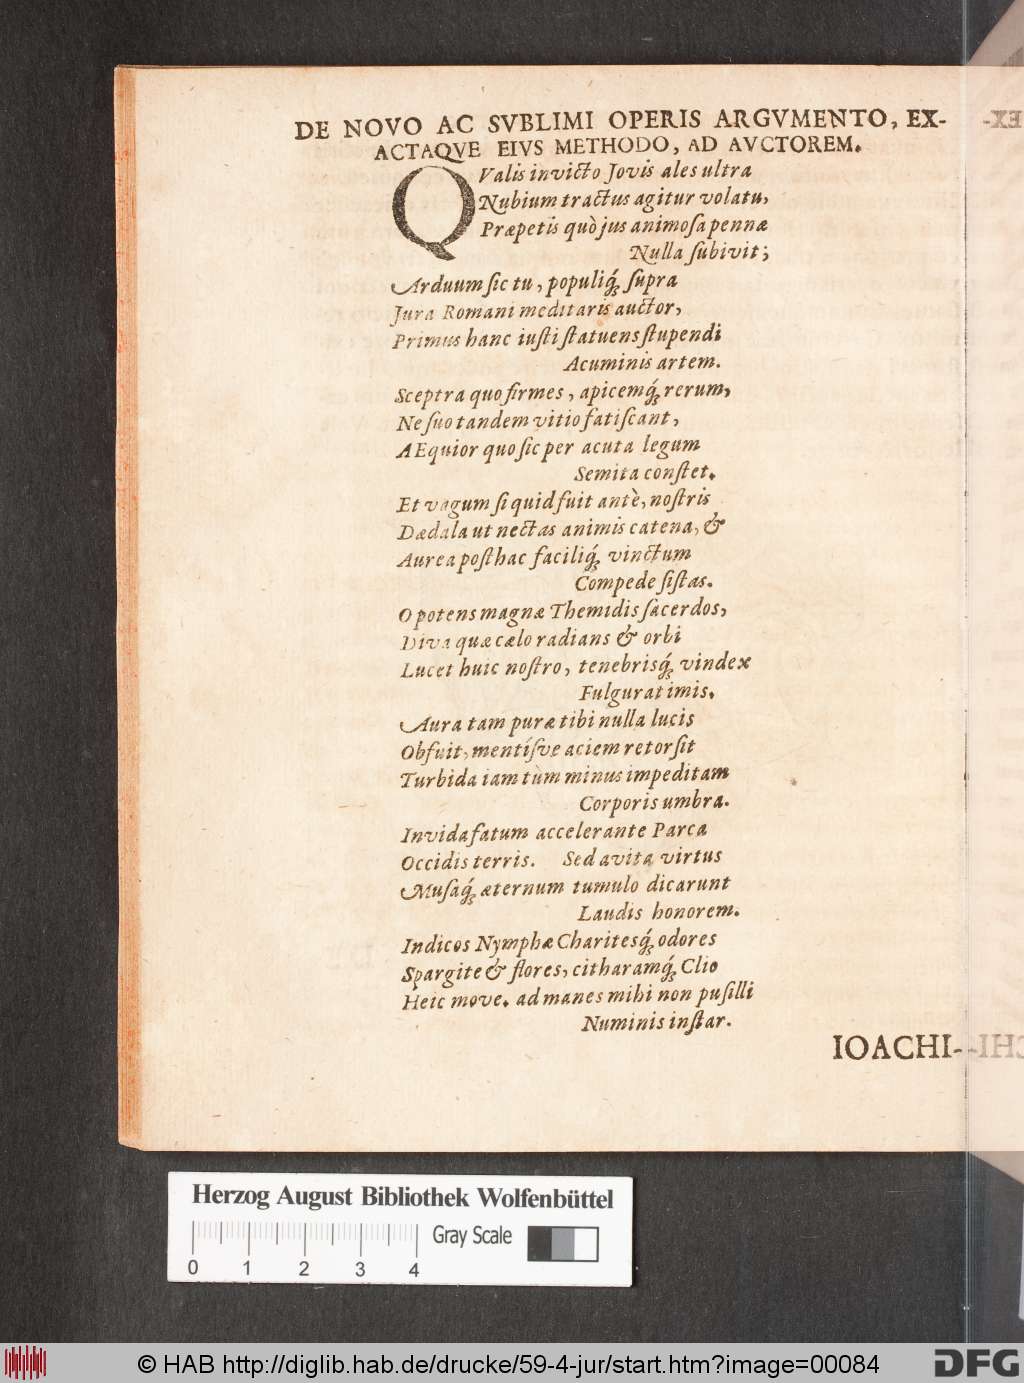 DE NOVO AC SVBLIMI OPERIS ARGVMENTO, EX-
ACTAQVE EIVS METHODO, AD AVCTOREM.
QValis invicto Jovis ales ultra
Nubium tractus agitur volatu,
Præpetis quò jus animosa pennæ
Nulla subivit;
Arduum sic tu, populiq́; supra
Jura Romani meditaris auctor,
Primus hanc iusti statuens stupendi
Acuminis artem.
Sceptra quo firmes, apicemq́; rerum,
Ne suo tandem vitio fatiscant,
AEquior quo sic per acuta legum
Semita constet.
Et vagum si quid fuit antè, nostris
Dædala ut nectas animis catena, &
Aurea posthac faciliq́; vinctum
Compede sistas.
O potens magnæ Themidis sacerdos,
Diva quæ cælo radians & orbi
Lucet huic nostro, tenebrisq́; vindex
Fulgurat imis.
Aura tam puræ tibi nulla lucis
Obfuit, mentísve aciem retorsit
Turbida iam tùm minus impeditam
Corporis umbra.
Invida fatum accelerante Parca
Occidis terris. Sed avita virtus
Musaq́; æternum tumulo dicarunt
Laudis honorem.
Indicos Nymphæ Charitesq́; odores
Spargite & flores, citharamq́; Clio
Heic move. ad manes mihi non pusilli
Numinis instar.
IOACHI-
Herzog August Bibliothek Wolfenbüttel
0 1 2 3 4
Gray Scale
© HAB http://diglib.hab.de/drucke/59-4-jur/start.htm?image=00084
DFG